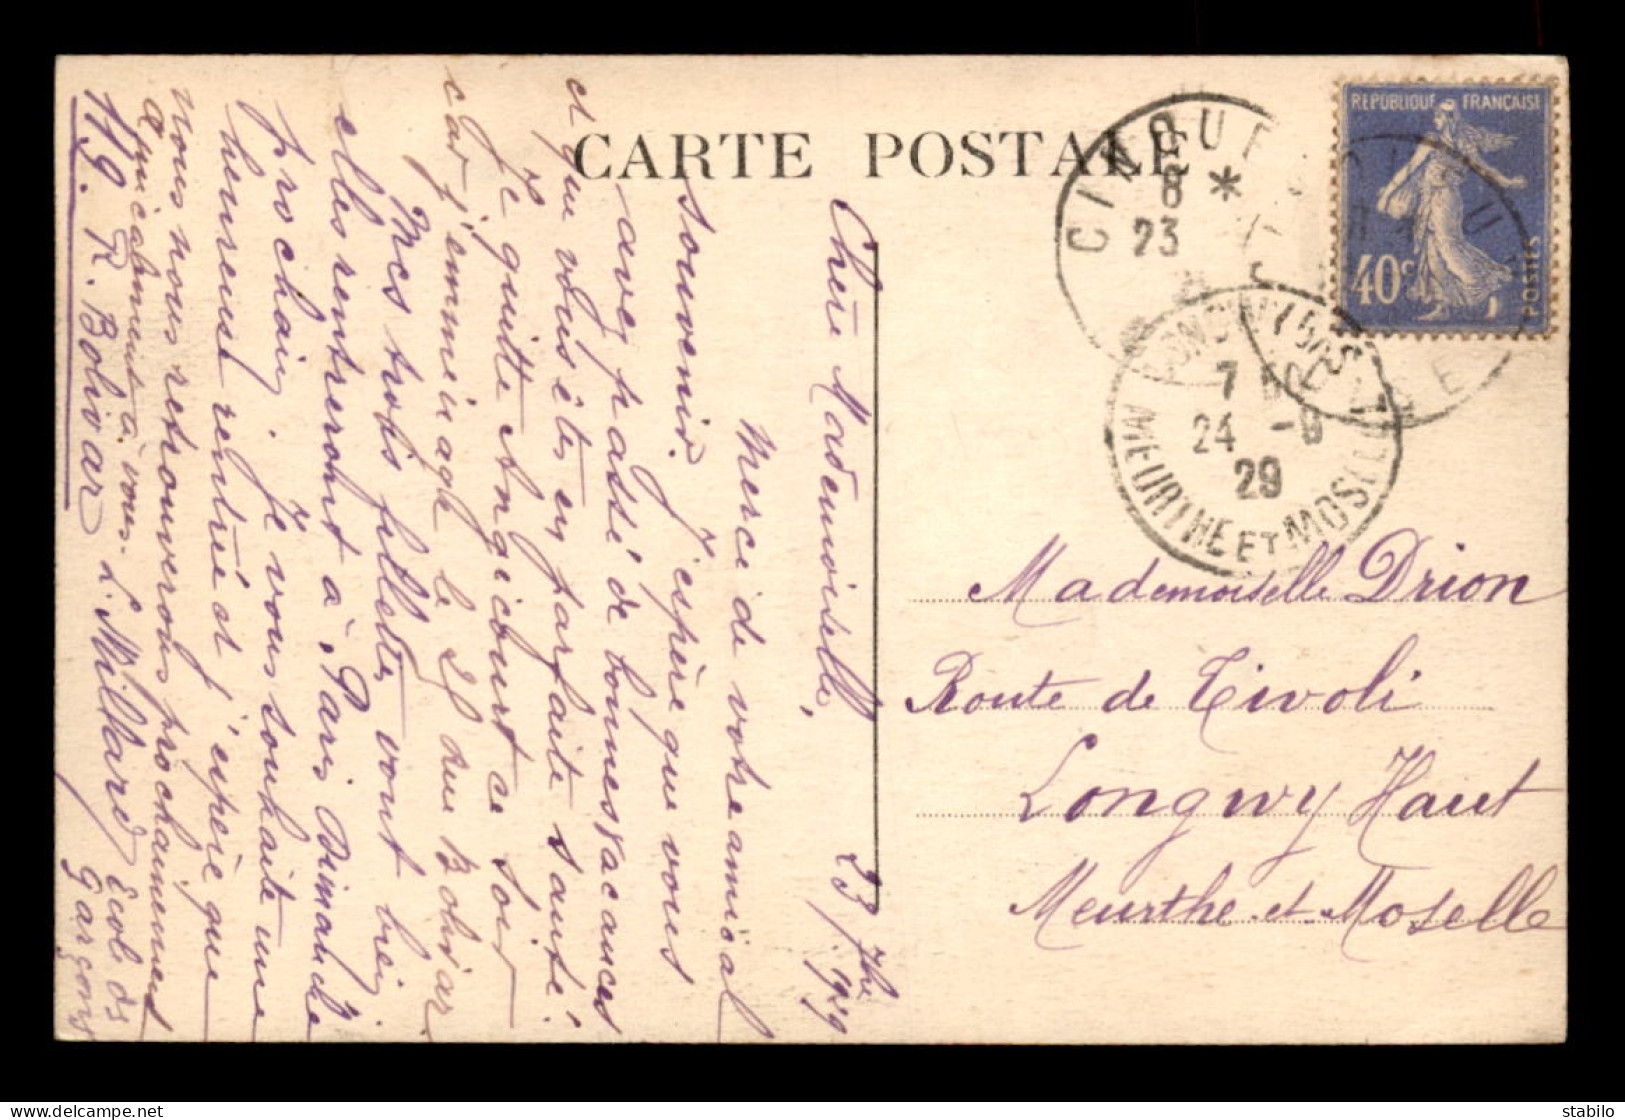 CARTE POSTALE
REPUBLIQUE FRANÇAISE
40c
POSTES
CINQUE
8 *
23
LONGWY (BAS)
7
24 -9
29
MEURTHE ET MOSELLE
Chère Mademoiselle,
23 7bre 1929
Merci de votre amical
souvenir. J'espère que vous
avez passé de bonnes vacances
et que vous êtes en parfaite santé.
Je quitte Angicourt ce soir
car j'emménage le 25 rue Bolivar
Mes trois fillettes vont bien
elles rentreront à Paris Dimanche
prochain. Je vous souhaite une
heureuse rentrée et j'espère que
nous nous retrouverons prochainement
Amicalement à vous. L. Milliard
119. R. Bolivar
Ecole de
Garçons
Mademoiselle Drion
Route de Tivoli
Longwy Haut
Meurthe et Moselle
stabilo